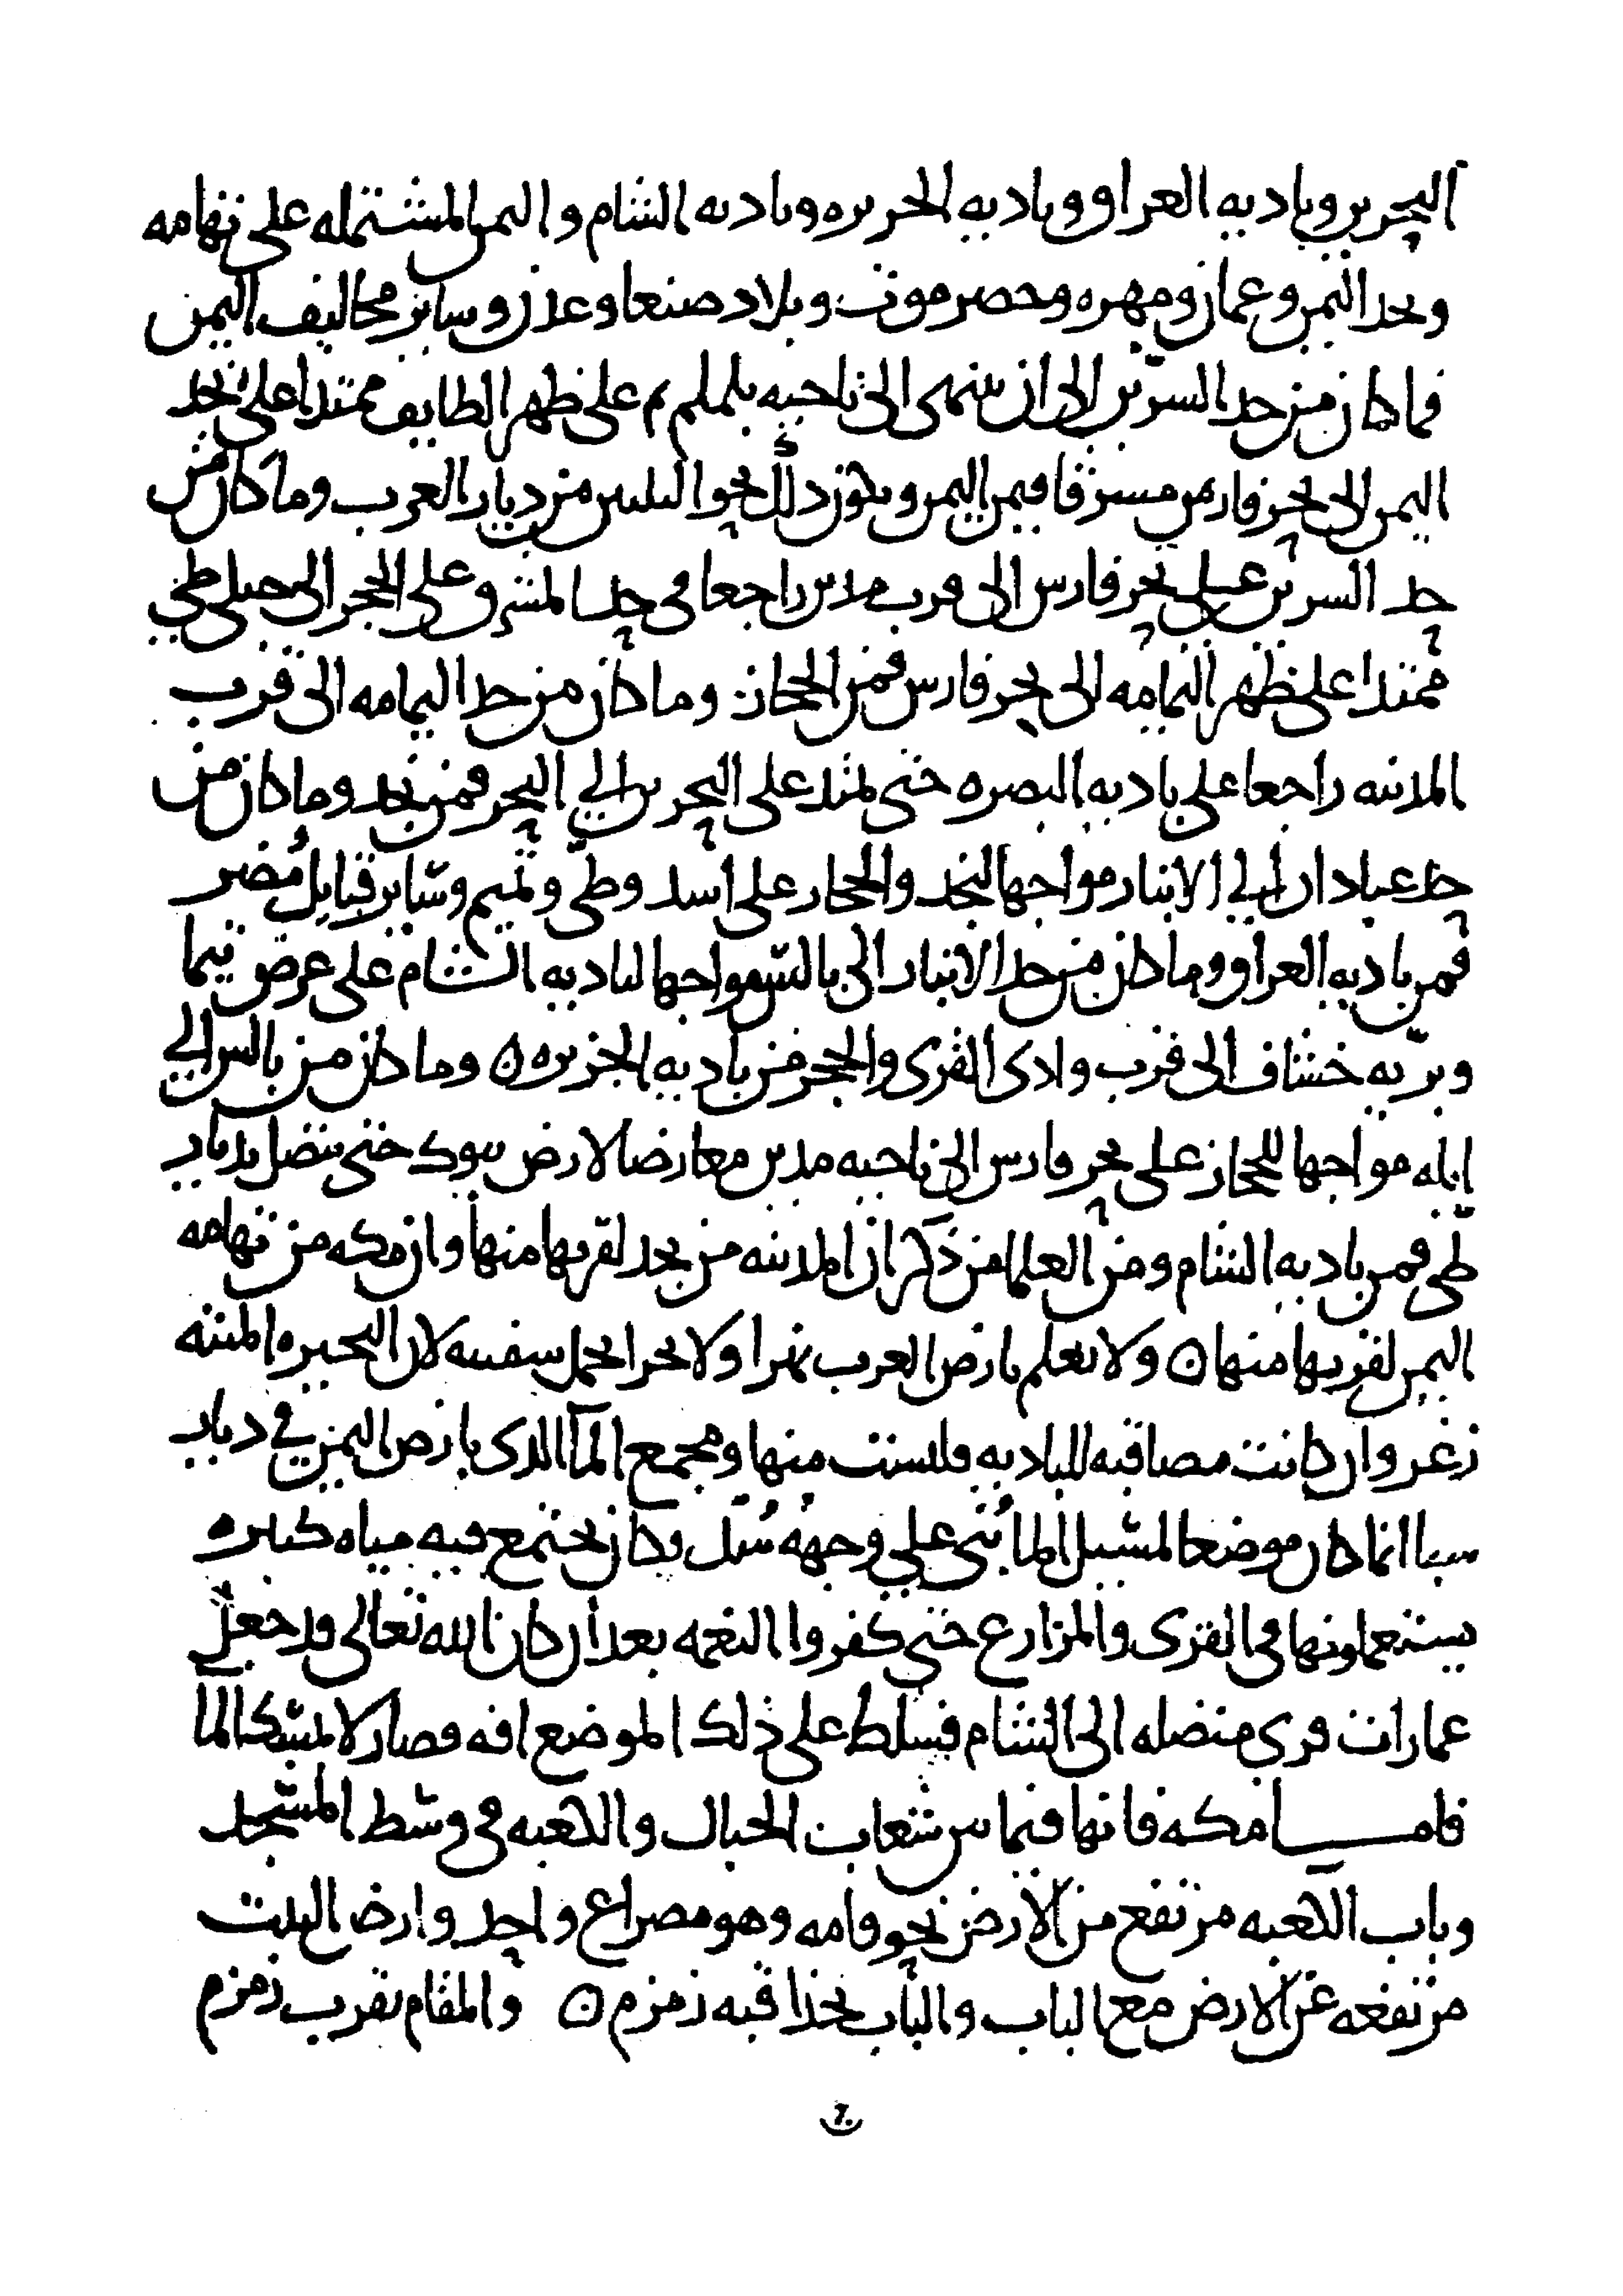 البحرين وباديه العراق وباديه الجزيره وباديه الشام واليمن المشتمله على تهامه
ونجد اليمن وعمان ومهره وحضرموت وبلاد صنعا وعدن وساير مخاليف اليمن
فما كان من حد السرّين الى ان ينتهى الى ناحيه يلملم ثم على ظهر الطايف ممتدا على نجد
اليمن الى بحر فارس مشرقا فمن اليمن ويكون ذلك نحو الثلثين من ديار العرب وما كان من
حد السرين على بحر فارس الى قرب مدين راجعا فى حد المشرق على الحجر الى جبلى طي
ممتدا على ظهر اليمامه الى بحر فارس فمن الحجاز وما كان من حد اليمامه الى قرب
المدينه راجعا على باديه البصره حتى يمتد على البحرين الي البحر فمن نجد وما كان من
حد عبادان الي الانبار مواجها لنجد والحجاز على اسد وطيّ وتميم وساير قبايل مُضر
فمن باديه العراق وما كان من حد الانبار الى بالس مواجها لباديه الشام على عرض تيما
وبرّيه خساف الى قرب وادى القرى والحجر فمن باديه الجزيره ن وما كان من بالس الي
ايله مواجها للحجاز على بحر فارس الى ناحيه مدين معارضا لارض تبوك حتى يتصل بديار
طيّ فمن باديه الشام ومن العلما من ذكر ان المدينه من نجد لقربها منها وان مكه من تهامه
اليمن لقربها منها ن ولا نعلم بارض العرب نهرا ولا بحرا يحمل سفينه لان البحيره المنتنه
زغر وان كانت مصاقبه للباديه فليست منها ومجمع المآ الذى بارض اليمن في ديار
سبا انما كان موضعا لمسيل الما بُنى على وجهه سُدّ فكان يجتمع فيه مياه كثيره
يستعملونها فى القرى والمزارع حتى كفروا النعمه بعد ان كان الله تعالى قد جعل
عمارات قرى متصله الى الشام فسلط على ذلك الموضع افه فصار لا يمسك الما
فامـــا مكه فانها فيما بين شعاب الجبال والكعبه فى وسط المسجد
وباب الكعبه مرتفع من الارض نحو قامه وهو مصراع واحد وارض البيت
مرتفعه عن الارض مع الباب والباب بحذا قبه زمزم ن والمقام بقرب زمزم